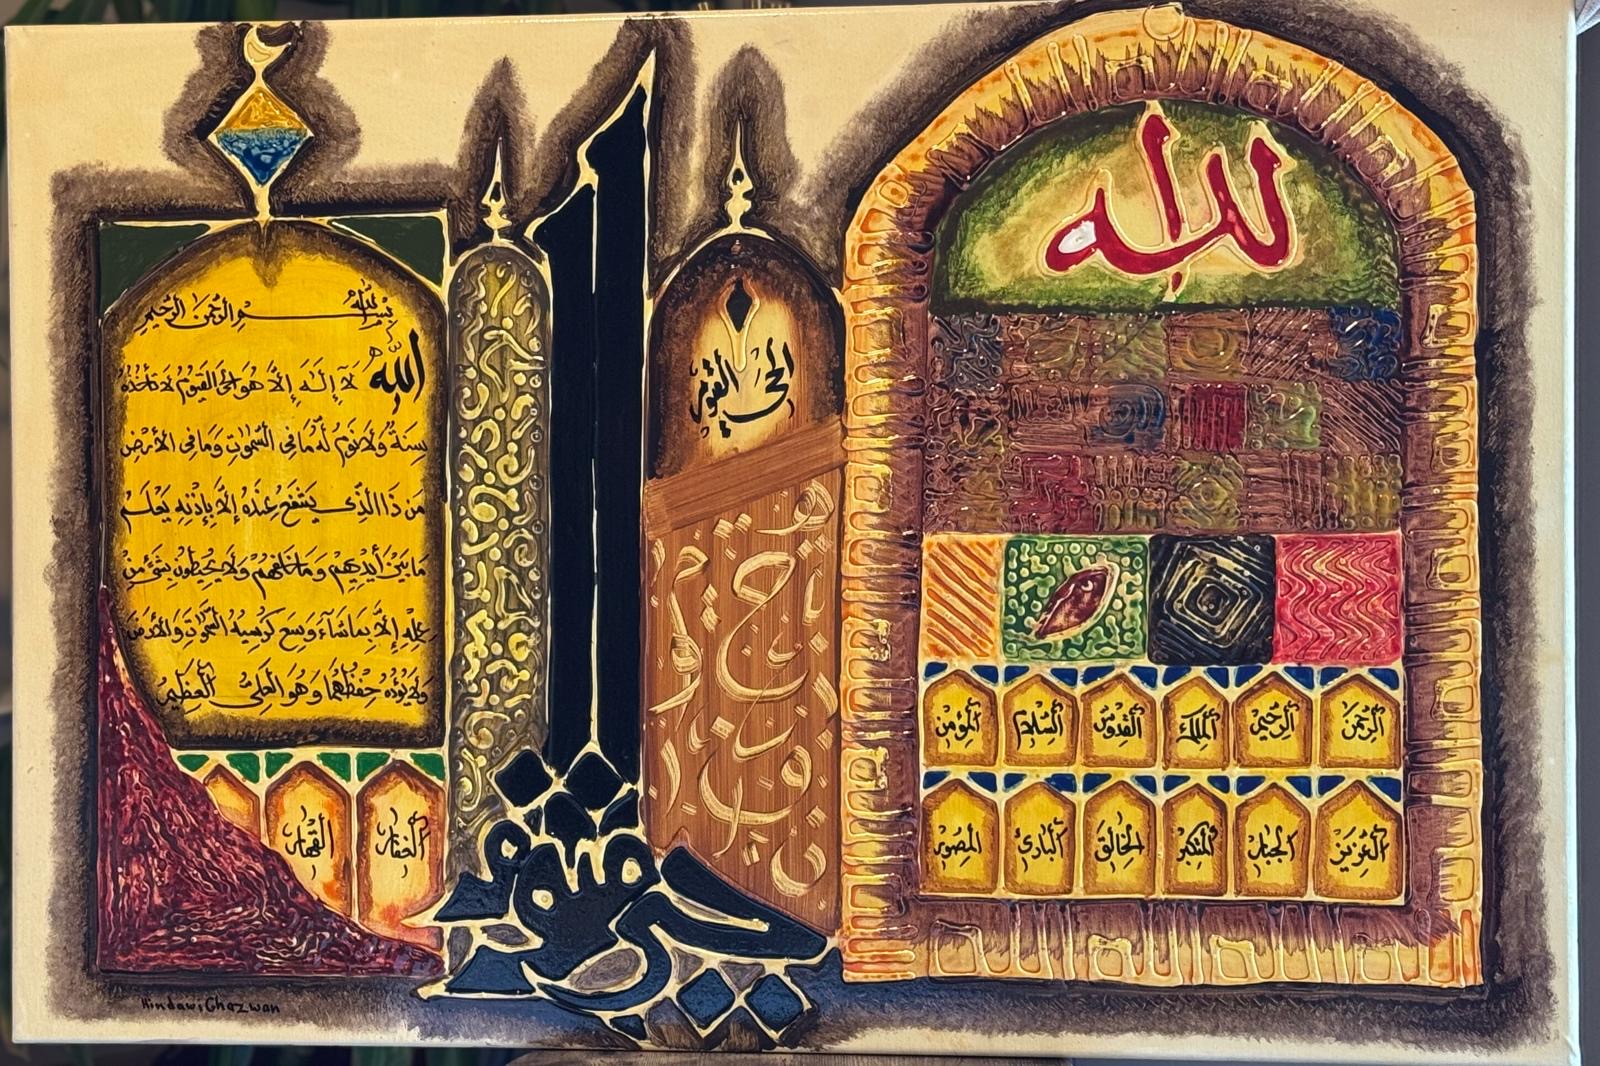 لله
بسم الله الرحمن الرحيم
الله لَآ إِلَٰهَ إِلَّا هُوَ الحَيُّ القَيُّومُ لَا تَأْخُذُهُ
سِنَةٌ وَلَا نَوْمٌ لَّهُ مَا فِي السَّمَٰوَٰتِ وَمَا فِي الأَرْضِ
مَن ذَا الَّذِي يَشْفَعُ عِندَهُ إِلَّا بِإِذْنِهِ يَعْلَمُ
مَا بَيْنَ أَيْدِيهِمْ وَمَا خَلْفَهُمْ وَلَا يُحِيطُونَ بِشَيْءٍ مِّنْ
عِلْمِهِ إِلَّا بِمَا شَآءَ وَسِعَ كُرْسِيُّهُ السَّمَٰوَٰتِ وَالأَرْضَ
وَلَا يَؤُدُهُ حِفْظُهُمَا وَهُوَ العَلِيُّ العَظِيمُ
الحي القيوم
الرحمن الرحيم الملك القدوس السلام المؤمن
العزيز الجبار المتكبر الخالق البارئ المصور
الغفار القهار
Hindawi Ghazwan